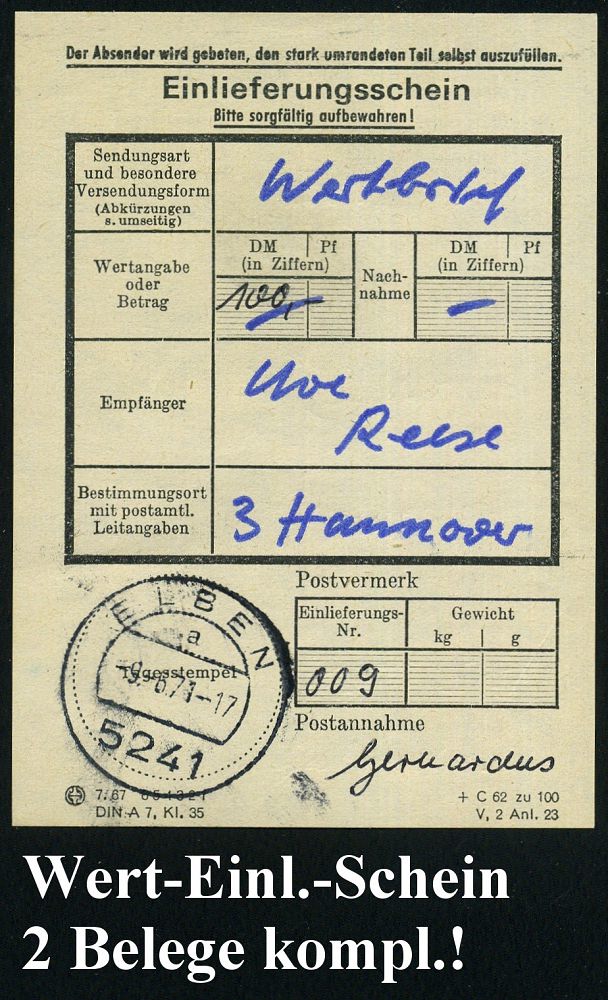 Der Absender wird gebeten, den stark umrandeten Teil selbst auszufüllen.
Einlieferungsschein
Bitte sorgfältig aufbewahren!
Sendungsart
und besondere
Versendungsform
(Abkürzungen
s. umseitig)
Wertbrief
Wertangabe
oder
Betrag
DM | Pf
(in Ziffern)
100,-
Nach-
nahme
DM | Pf
(in Ziffern)
—
Empfänger
Uwe
Reese
Bestimmungsort
mit postamtl.
Leitangaben
3 Hannover
Postvermerk
Einlieferungs-
Nr.
Gewicht
kg | g
009
ELBEN
a
Tagesstempel
-9.-6.71-17
5241
Postannahme
Gerhardus
7. 67 654321
DIN A 7, Kl. 35
+ C 62 zu 100
V, 2 Anl. 23
Wert-Einl.-Schein
2 Belege kompl.!